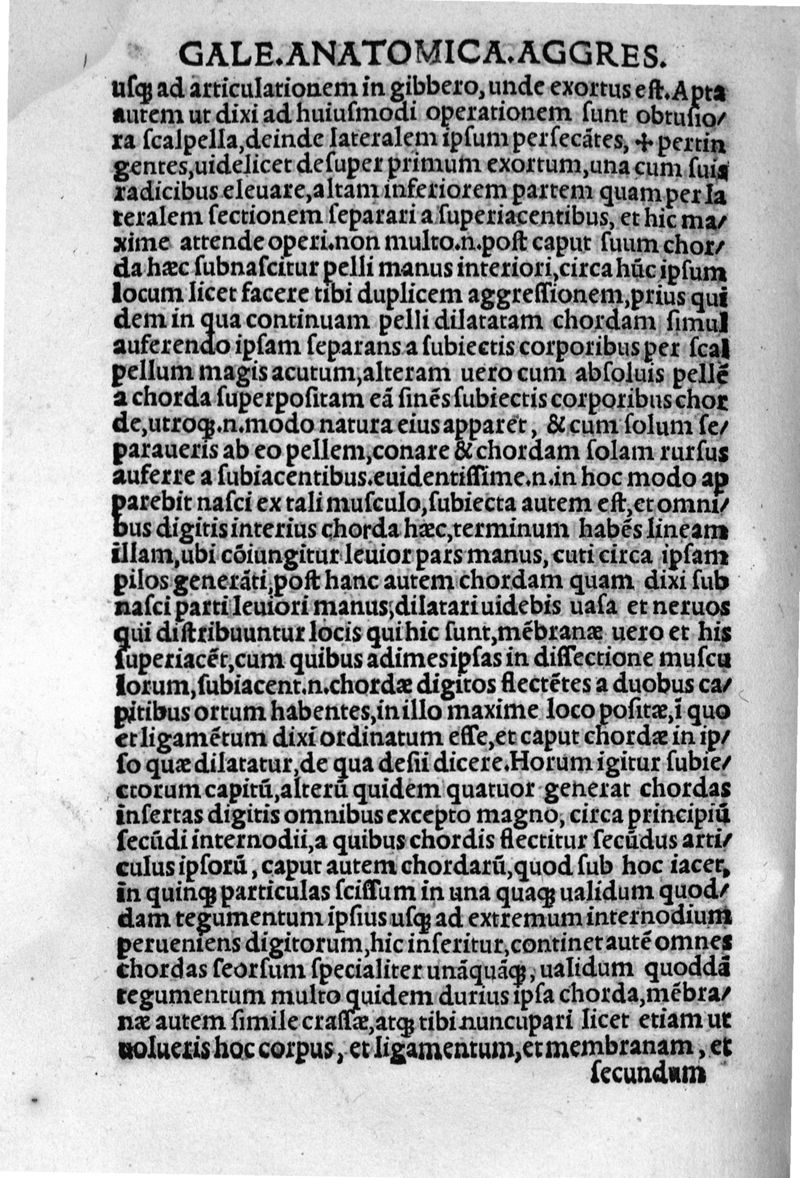 GALE.ANATOMICA.AGGRES.
usꝗ ad articulationem in gibbero, unde exortus est. Apta
autem ut dixi ad huiusmodi operationem sunt obtusio/
ra scalpella, deinde lateralem ipsum persecātes, ✢ pertin
gentes, uidelicet desuper primum exortum, una cum suis
radicibus eleuare, altam inferiorem partem quam per la
teralem sectionem separari a superiacentibus, et hic ma/
xime attende operi. non multo .n. post caput suum chor/
da hæc subnascitur pelli manus interiori, circa hūc ipsum
locum licet facere tibi duplicem aggressionem, prius qui
dem in qua continuam pelli dilatatam chordam simul
auferendo ipsam separans a subiectis corporibus per scal
pellum magis acutum, alteram uero cum absoluis pellē
a chorda superpositam eā sinēs subiectis corporibus chor
de, utroꝗ .n. modo natura eius apparet, & cum solum se/
paraueris ab eo pellem, conare & chordam solam rursus
auferre a subiacentibus. euidentissime .n. in hoc modo ap
parebit nasci ex tali musculo, subiecta autem est, et omni/
bus digitis interius chorda hæc, terminum habēs lineam
illam, ubi cōiungitur leuior pars manus, cuti circa ipsam
pilos generāti, post hanc autem chordam quam dixi sub
nasci parti leuiori manus, dilatari uidebis uasa et neruos
qui distribuuntur locis qui hic sunt, mēbranæ uero et his
superiacēt, cum quibus adimes ipsas in dissectione muscu
lorum, subiacent .n. chordæ digitos flectētes a duobus ca/
pitibus ortum habentes, in illo maxime loco positæ, ī quo
et ligamētum dixi ordinatum esse, et caput chordæ in ip/
so quæ dilatatur, de qua desii dicere. Horum igitur subie/
ctorum capitū, alterū quidem quatuor generat chordas
insertas digitis omnibus excepto magno, circa principiū
secūdi internodii, a quibus chordis flectitur secūdus arti/
culus ipsorū, caput autem chordarū, quod sub hoc iacet,
in quinꝗ particulas scissum in una quaꝗ ualidum quod/
dam tegumentum ipsius usꝗ ad extremum internodium
perueniens digitorum, hic inseritur, continet autē omnes
chordas seorsum specialiter unāquāꝗ, ualidum quoddā
tegumentum multo quidem durius ipsa chorda, mēbra/
næ autem simile crassæ, atꝗ tibi nuncupari licet etiam ut
uolueris hoc corpus, et ligamentum, et membranam, et
secundum